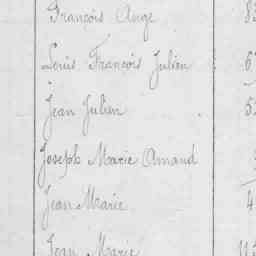 François Ange
Louis François Julien
Jean Julien
Joseph Marie Amand
Jean Marie
Jean Marie